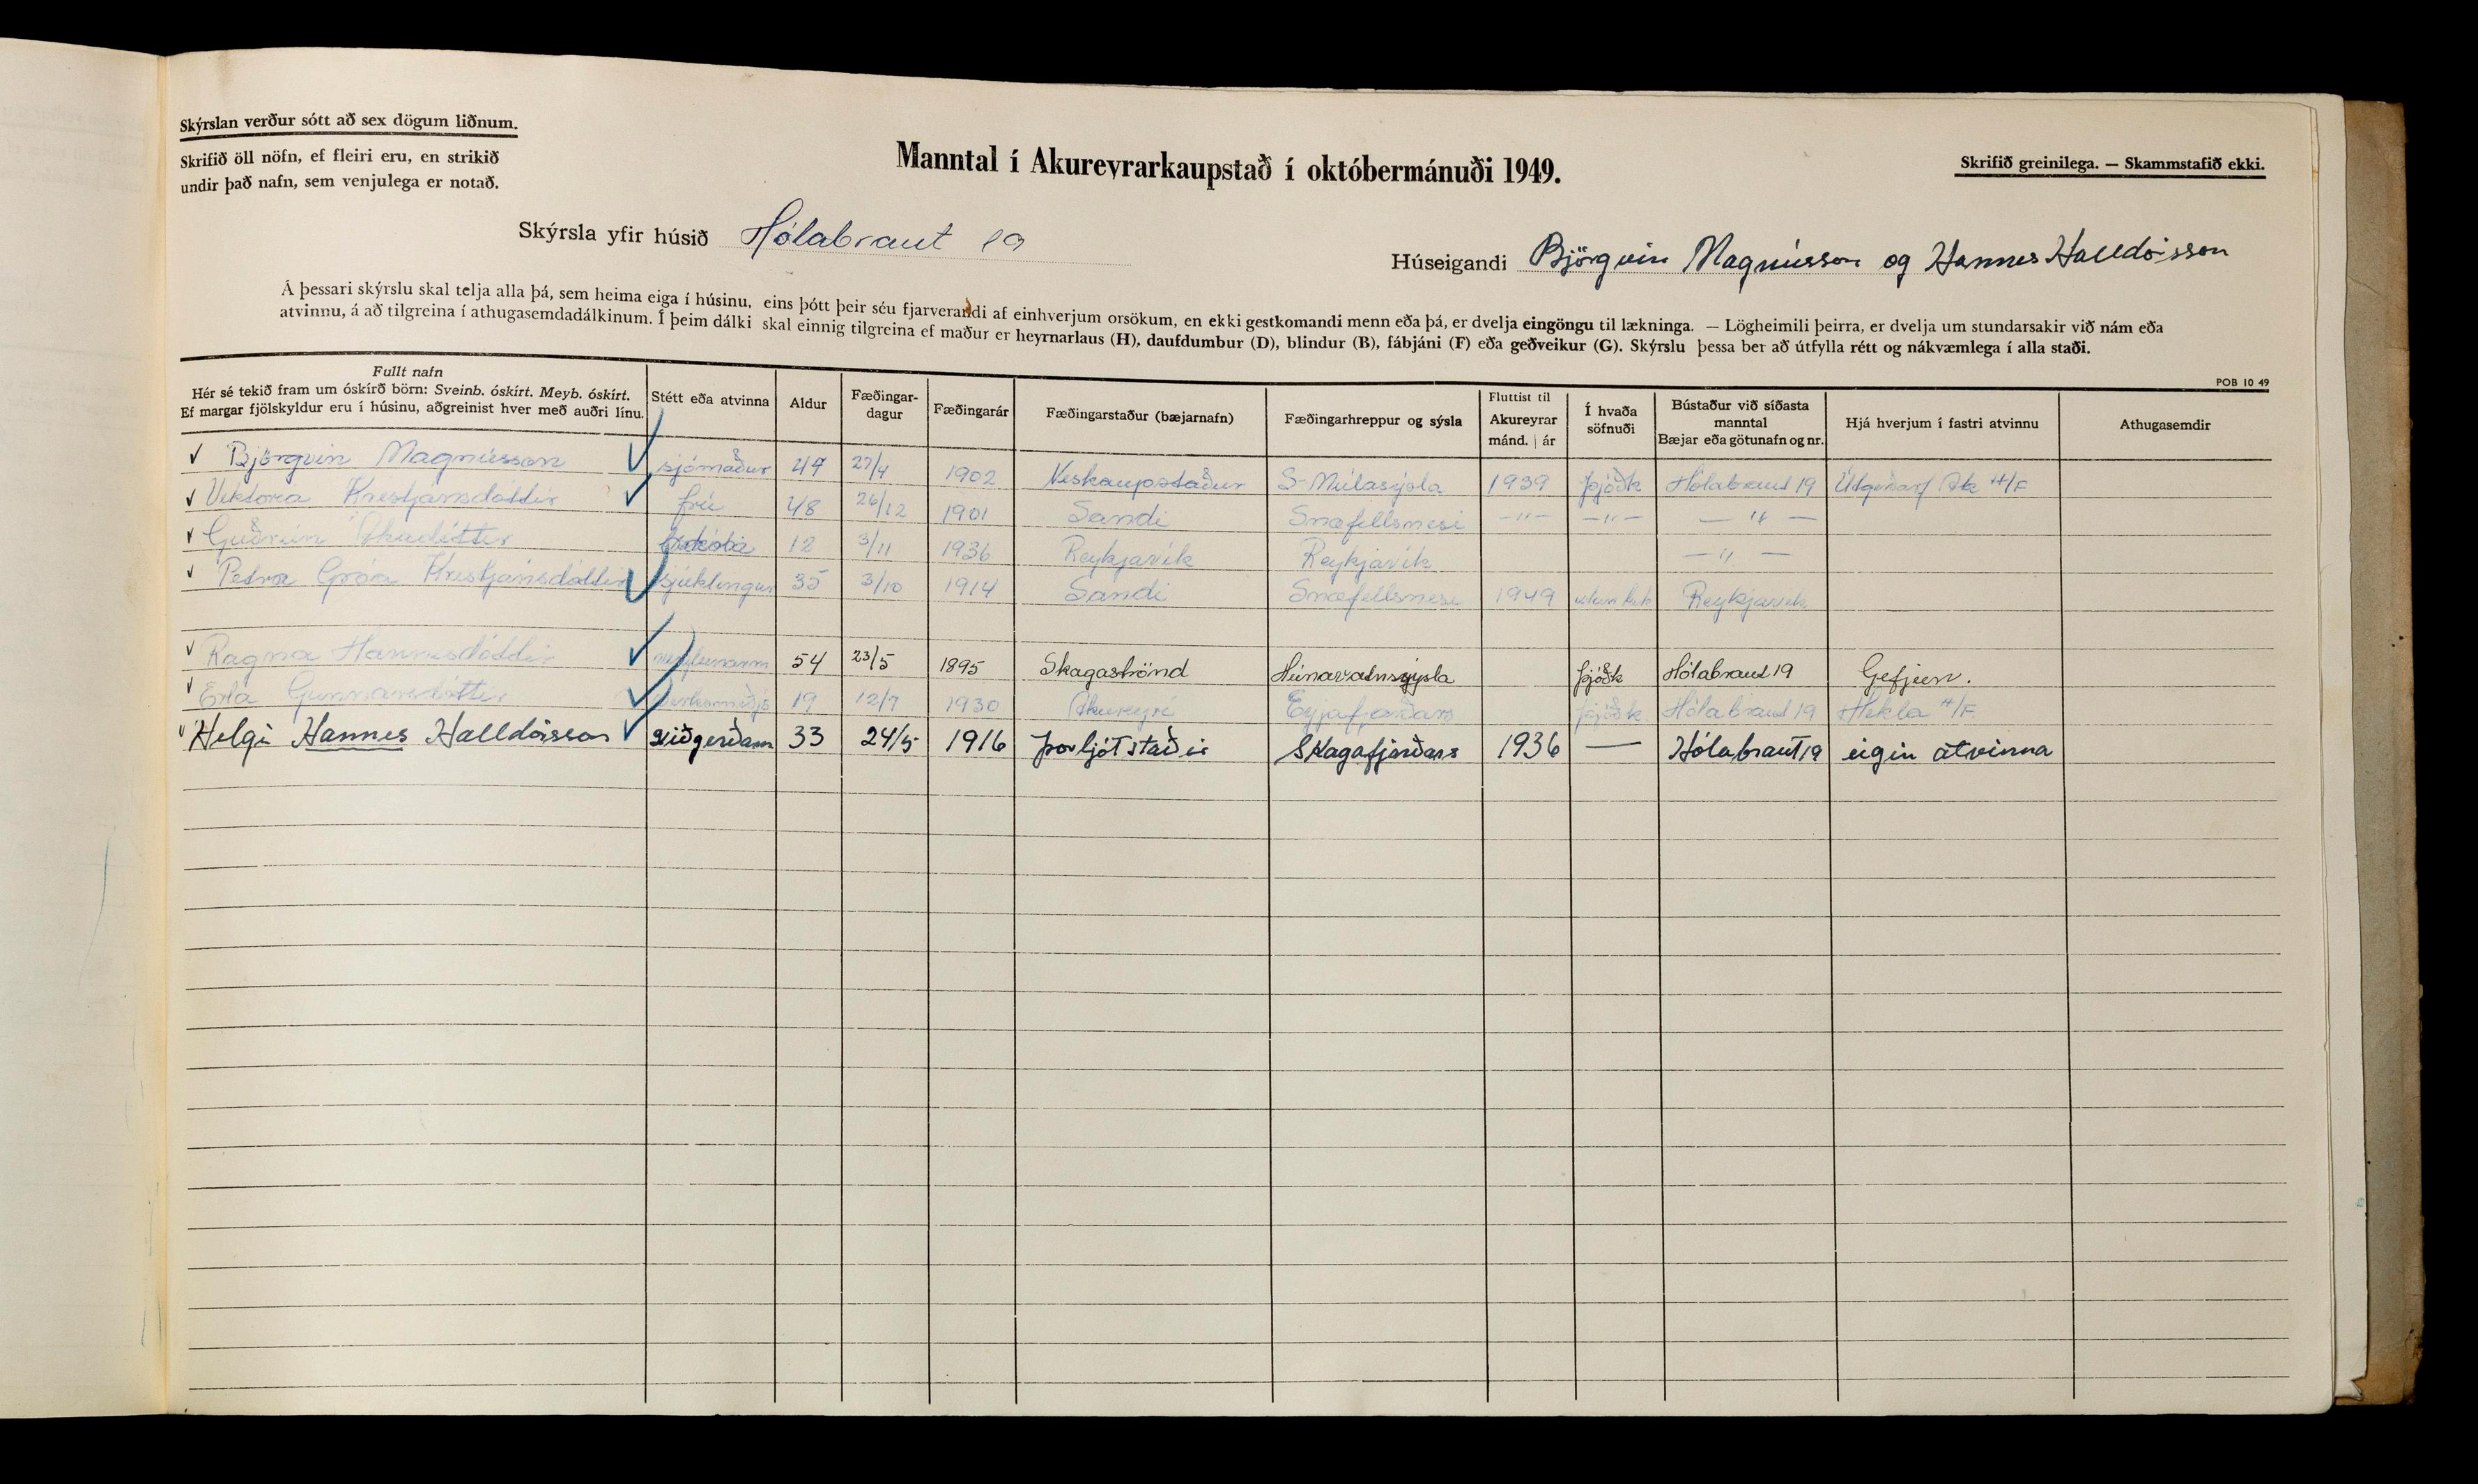 Skýrslan verður sótt að sex dögum liðnum.
Skrifið öll nöfn, ef fleiri eru, en strikið
undir það nafn, sem venjulega er notað.
Manntal í Akureyrarkaupstað í októbermánuði 1949.
Skrifið greinilega. — Skammstafið ekki.
Skýrsla yfir húsið Hólabraut 19
Húseigandi Björgvin Magnússon og Hannes Halldórsson
Á þessari skýrslu skal telja alla þá, sem heima eiga í húsinu, eins þótt þeir séu fjarverandi af einhverjum orsökum, en ekki gestkomandi menn eða þá, er dvelja eingöngu til lækninga. — Lögheimili þeirra, er dvelja um stundarsakir við nám eða
atvinnu, á að tilgreina í athugasemdadálkinum. Í þeim dálki skal einnig tilgreina ef maður er heyrnarlaus (H), daufdumbur (D), blindur (B), fábjáni (F) eða geðveikur (G). Skýrslu þessa ber að útfylla rétt og nákvæmlega í alla staði.
POB 10 49
Fullt nafn
Hér sé tekið fram um óskírð börn: Sveinb. óskírt. Meyb. óskírt.
Ef margar fjölskyldur eru í húsinu, aðgreinist hver með auðri línu.
Stétt eða atvinna
Aldur
Fæðingar-
dagur
Fæðingarár
Fæðingarstaður (bæjarnafn)
Fæðingarhreppur og sýsla
Fluttist til
Akureyrar
mánd. | ár
Í hvaða
söfnuði
Bústaður við síðasta
manntal
Bæjar eða götunafn og nr.
Hjá hverjum í fastri atvinnu
Athugasemdir
Björgvin Magnússon sjómaður 47 27/4 1902 Neskaupstaður S-Múlasýsla 1939 þjóðk Hólabraut 19 Útgerðarf Ak H/F
Viktoría Kristjánsdóttir frú 48 26/12 1901 Sandi Snæfellsnesi —"— —"— —"—
Guðrún Ákadóttir 12 3/11 1936 Reykjavík Reykjavík —"—
Petra Gróa Kristjánsdóttir sjúklingur 35 3/10 1914 Sandi Snæfellsnesi 1949 utan Reykjavík
Ragna Hannesdóttir 54 23/5 1895 Skagaströnd Húnavatnssýsla þjóðk Hólabraut 19 Gefjun.
Erla Gunnarsdóttir 19 12/7 1930 Akureyri Eyjafjarðars þjóðk Hólabraut 19 Hekla H/F
Helgi Hannes Halldórsson viðgerðam 33 24/5 1916 Þorljótstaðir Skagafjarðars 1936 — Hólabraut 19 eigin atvinna